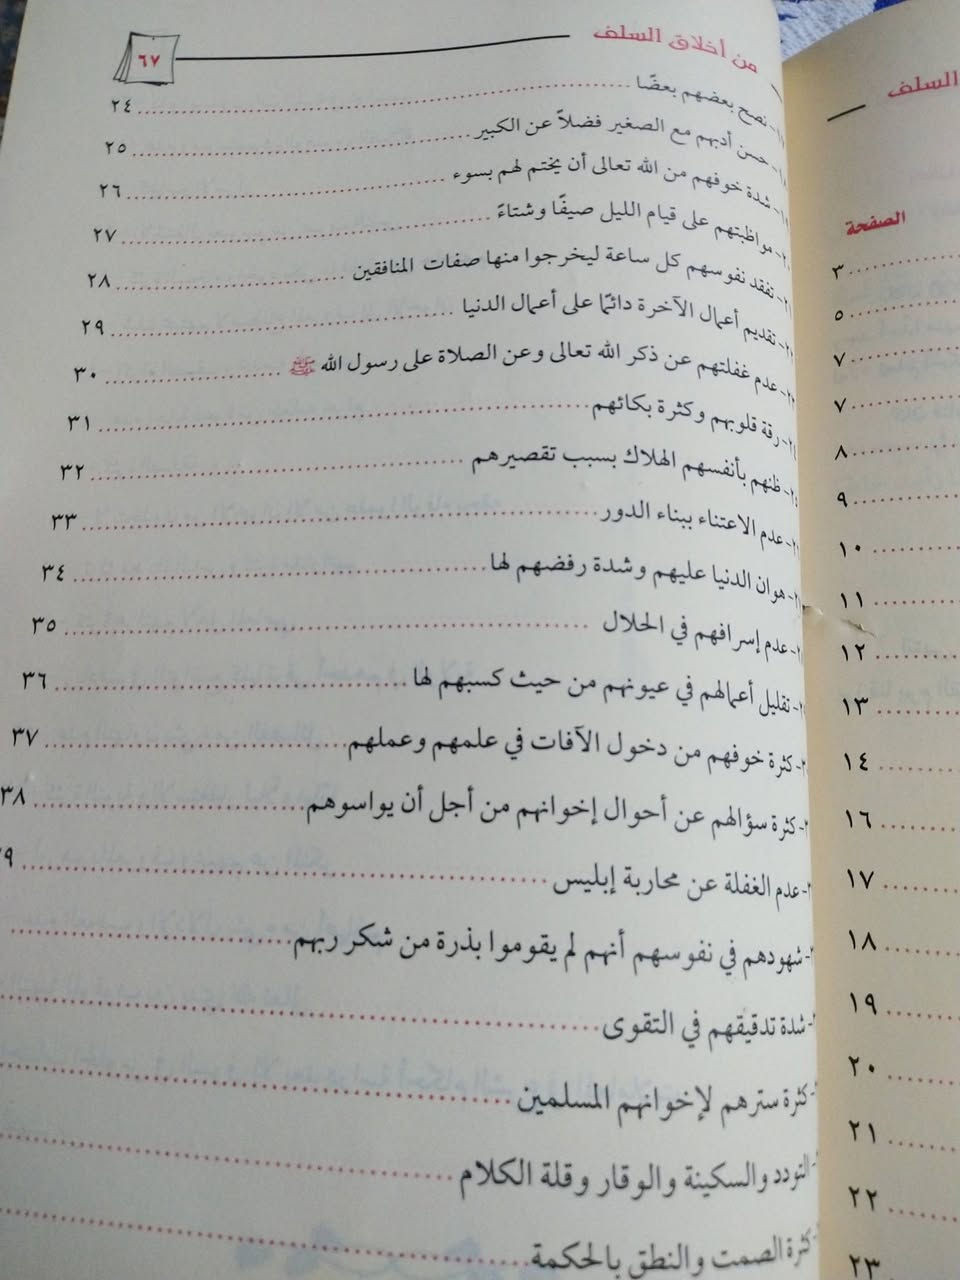 من أخلاق السلف
٦٧
نصح بعضهم بعضًا ٢٤
١٨- حسن أدبهم مع الصغير فضلاً عن الكبير ٢٥
١٩- شدة خوفهم من الله تعالى أن يختم لهم بسوء ٢٦
مواظبتهم على قيام الليل صيفًا وشتاءً ٢٧
تفقد نفوسهم كل ساعة ليخرجوا منها صفات المنافقين ٢٨
تقديم أعمال الآخرة دائمًا على أعمال الدنيا ٢٩
عدم غفلتهم عن ذكر الله تعالى وعن الصلاة على رسول الله ﷺ ٣٠
رقة قلوبهم وكثرة بكائهم ٣١
ظنهم بأنفسهم الهلاك بسبب تقصيرهم ٣٢
عدم الاعتناء ببناء الدور ٣٣
هوان الدنيا عليهم وشدة رفضهم لها ٣٤
عدم إسرافهم في الحلال ٣٥
تقليل أعمالهم في عيونهم من حيث كسبهم لها ٣٦
كثرة خوفهم من دخول الآفات في علمهم وعملهم ٣٧
كثرة سؤالهم عن أحوال إخوانهم من أجل أن يواسوهم ٣٨
عدم الغفلة عن محاربة إبليس
شهودهم في نفوسهم أنهم لم يقوموا بذرة من شكر ربهم
شدة تدقيقهم في التقوى
كثرة سترهم لإخوانهم المسلمين
التودد والسكينة والوقار وقلة الكلام
كثرة الصمت والنطق بالحكمة
السلف
الصفحة
٣
٥
٧
٧
٨
٩
١٠
١١
١٢
١٣
١٤
١٦
١٧
١٨
١٩
٢٠
٢١
٢٢
٢٣